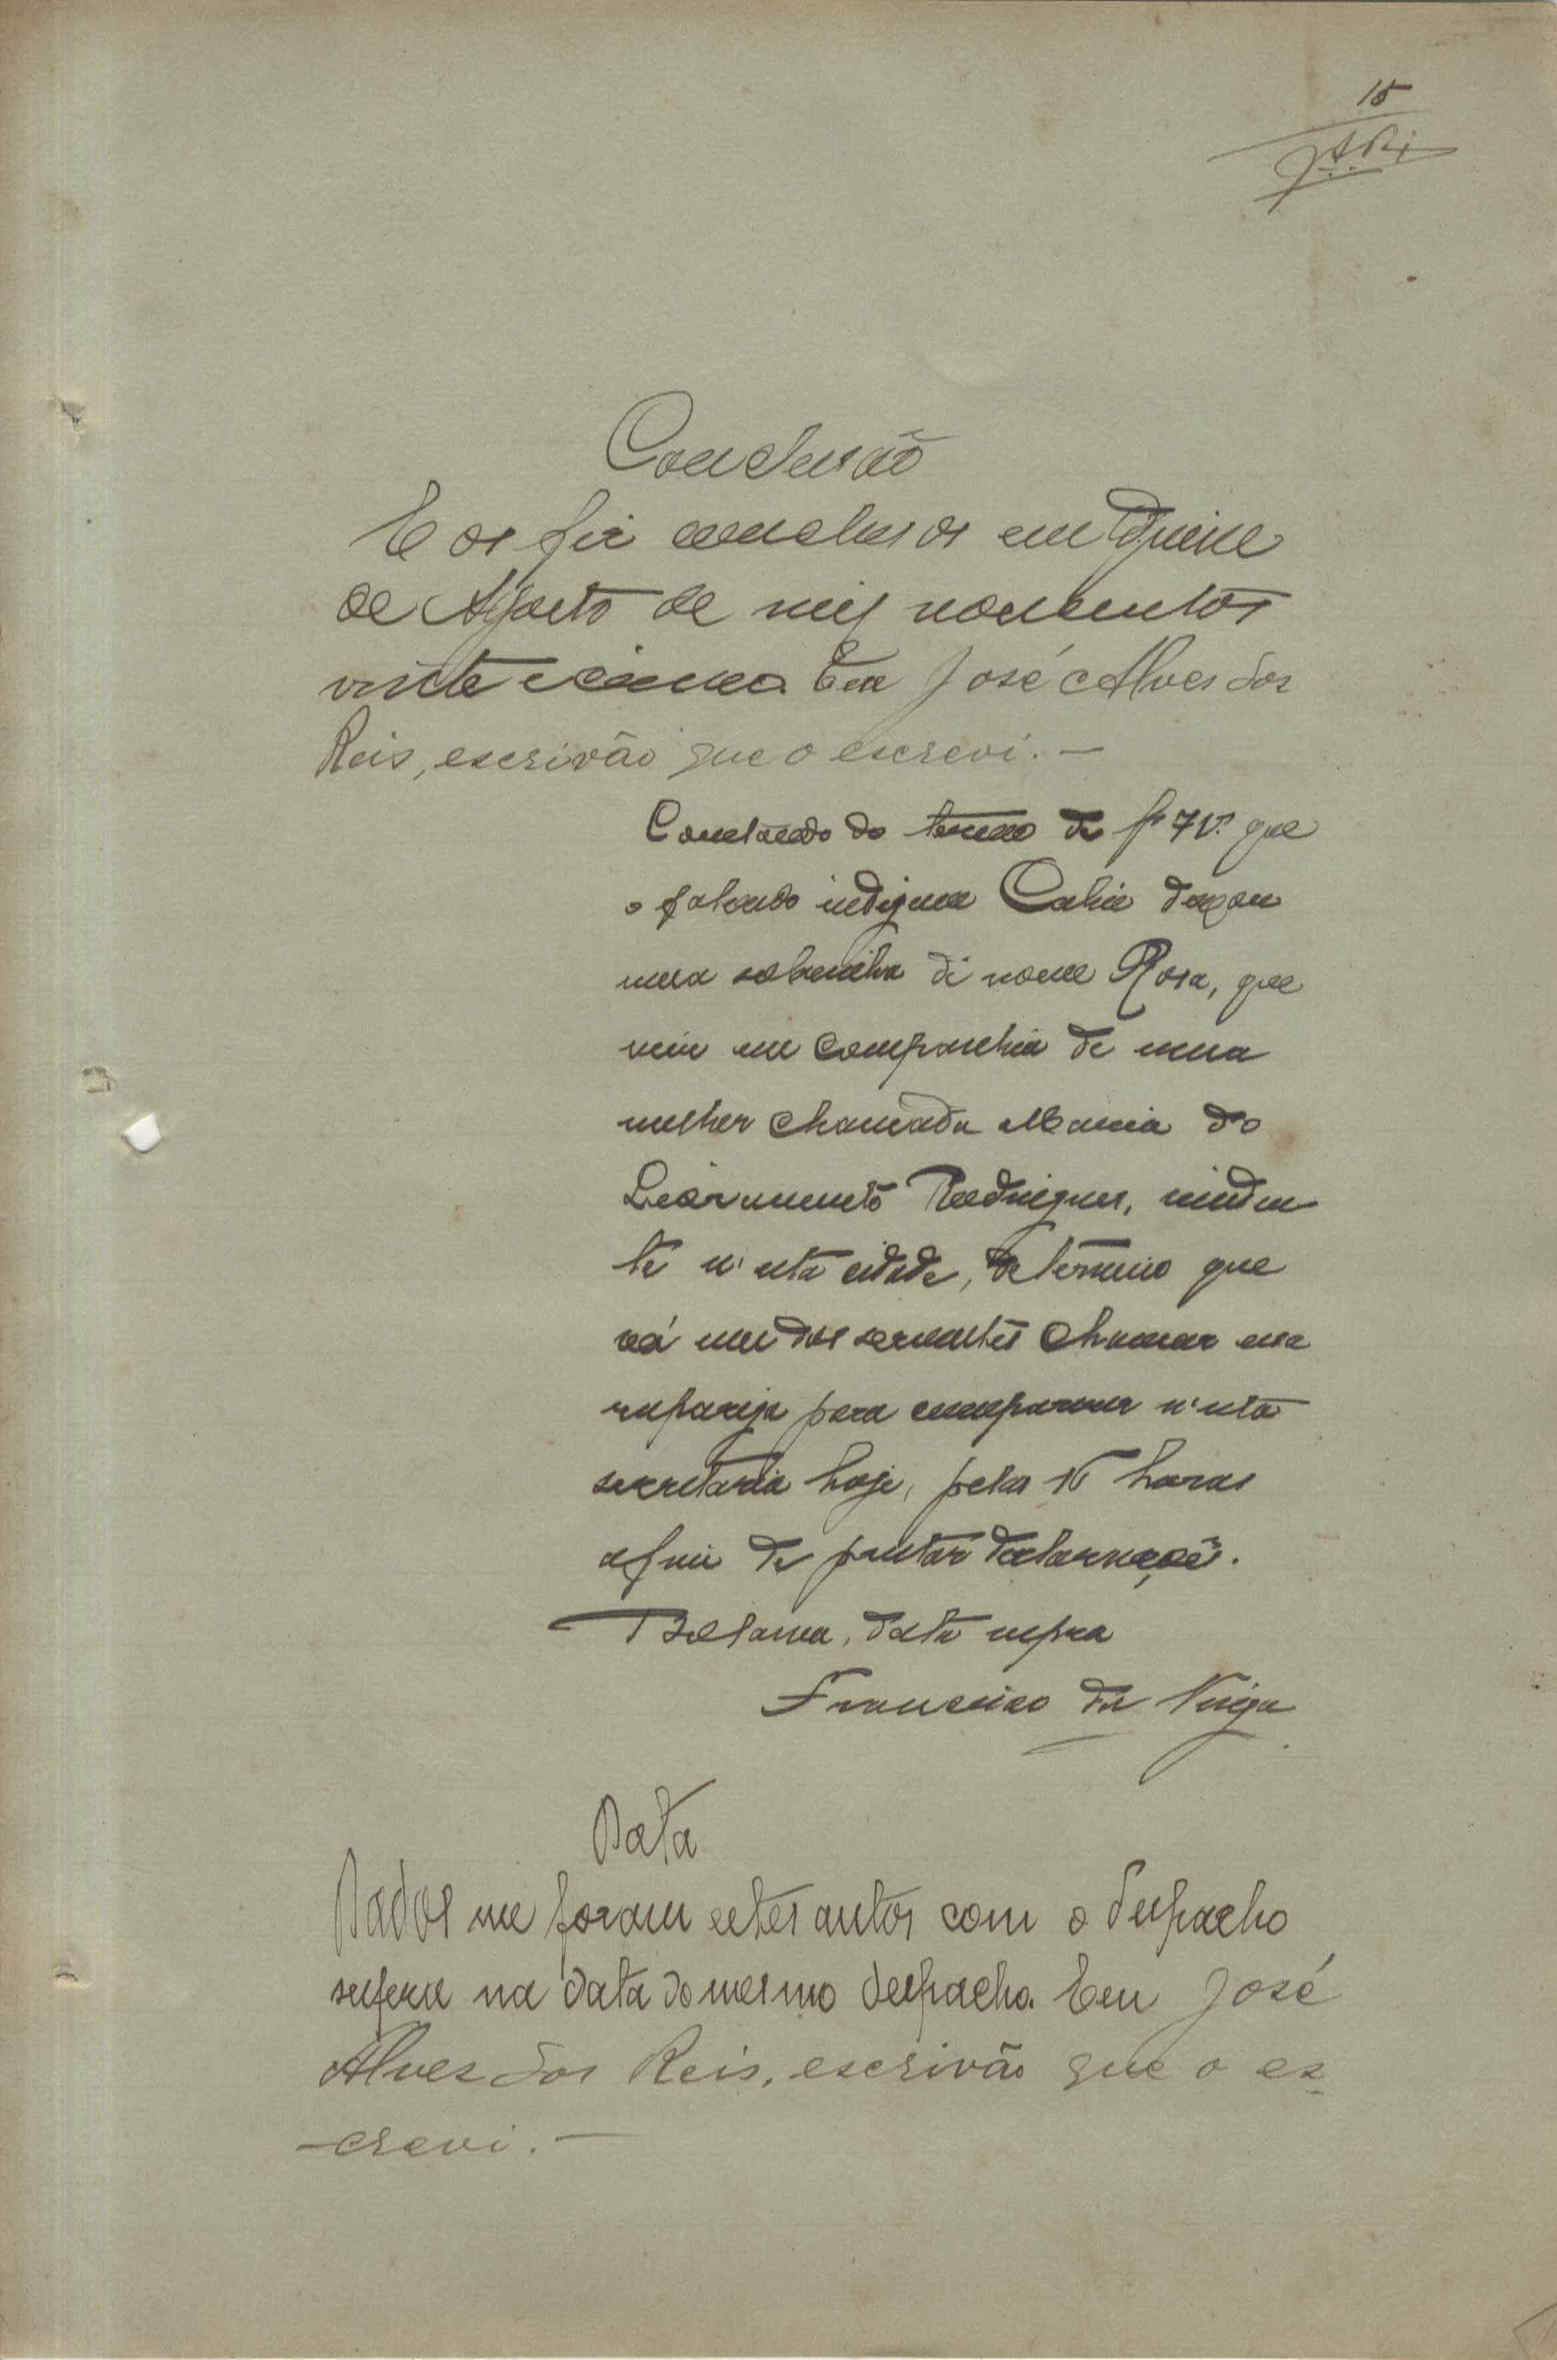 15
J.A.Ri
Conclusão
E os fiz conclusos em quinze
de Agosto de mil novecentos
vinte e cinco. Eu José Alves dos
Reis, escrivão que o escrevi. —
Constando do termo de fs 7 V. que
o falecido indigena Cahie deixou
uma sobrinha de nome Rosa, que
vive em companhia de uma
mulher chamada Maria do
Livramento Rodrigues, residen-
te n'esta cidade, determino que
vá um dos serventes chamar essa
rapariga para comparecer n'esta
secretaria hoje, pelas 16 horas
afim de prestar declarações.
Bolama, data supra
Francisco da Veiga
Data
Dados me foram estes autos com o despacho
supra na data do mesmo despacho. Eu José
Alves dos Reis, escrivão que o es-
-crevi. —